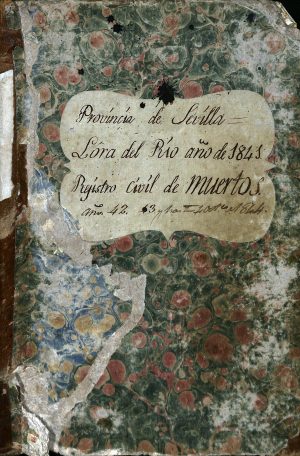 Provincia de Sevilla =
Lóra del Río año de 1841
Registro Civil de muertos
años 42. 43 y hasta